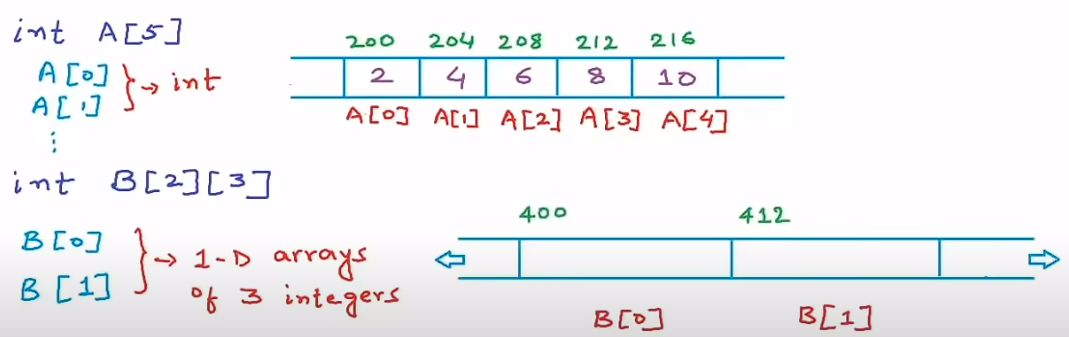 int A[5]
A[0]
A[1]
⋮
} → int
200 204 208 212 216
2 4 6 8 10
A[0] A[1] A[2] A[3] A[4]
int B[2][3]
B[0]
B[1]
} → 1-D arrays
of 3 integers
400 412
B[0] B[1]